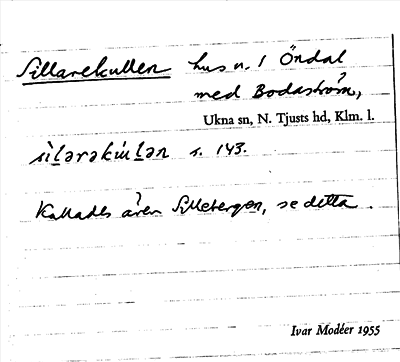 Sillarekullen hus u. / Öndal
med Bodaström,
Ukna sn, N. Tjusts hd, Klm. l.
s. 143.
Kallades även Silleberget, se detta.
Ivar Modéer 1955